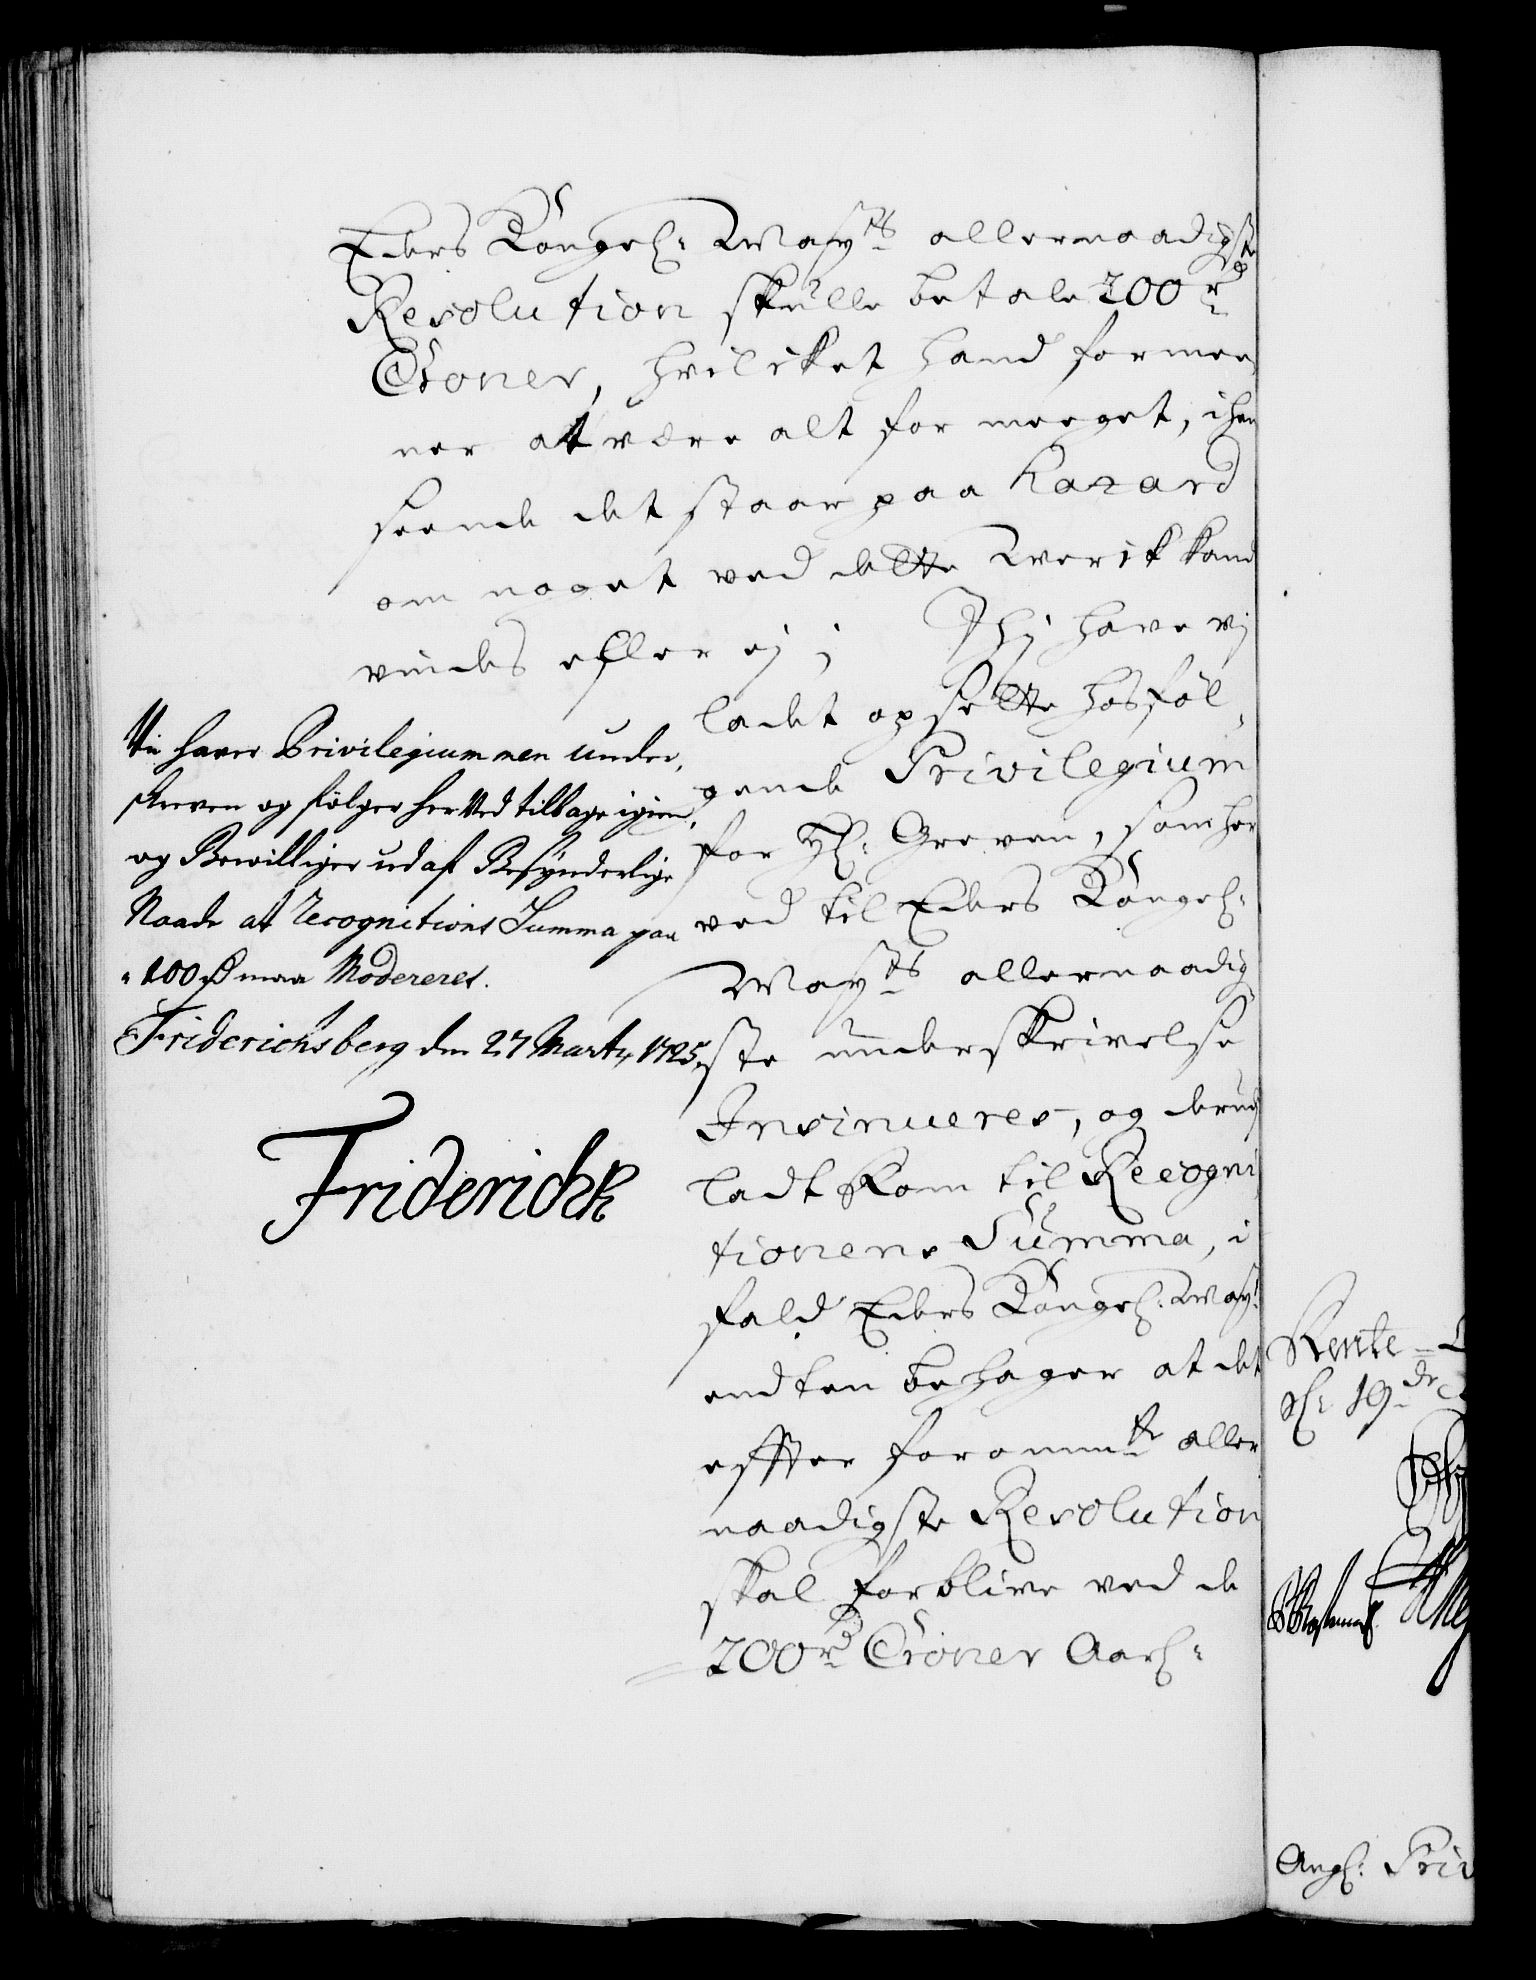 Eders Kongel: May:ts allernaadigste
Resolution skulle betale 200 rd
Croner, hvilcket hand formee
ner at være alt for meeget, i hen
seende det staar paa hazard
om noget ved dette Werck kand
vindes eller ej; Thj have vj
ladet opsette hosföl
gende Privilegium
for H: Greven, som her
ved til Eders Kongel:
May:ts allernaadig
ste underskrivelse
Insinueres, og derud
ladt Rom til Recogni
tionens Summa, i
fald Eders Kongel: May:t
endten behager at det
effter forommte aller
naadigste Resolution
skal forblive ved de
200 rd Croner Aarl:
Vii haver Privilegiummen under,
skreven og fölger her Ved tilbage igien,
og Bewilliger ud af Besÿnderlige
Naade at Recognitions Summa paa
100 rd maa Modereret.
Friderichsberg den 27 Marty 1725,
Friderich R
Rente
d: 19 de
Ang: Priv